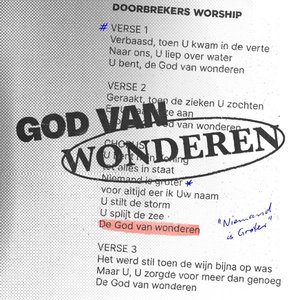 DOORBREKERS WORSHIP
# VERSE 1
Verbaasd, toen U kwam in de verte
Naar ons, U liep over water
U bent, de God van wonderen
VERSE 2
Geraakt, toen de zieken U zochten
aan
God van wonderen
GOD VAN
WONDEREN
tot alles in staat
Niemand is groter *
voor altijd eer ik Uw naam
U stilt de storm
U splijt de zee
De God van wonderen
"Niemand
is Groter"
VERSE 3
Het werd stil toen de wijn bijna op was
Maar U, U zorgde voor meer dan genoeg
De God van wonderen